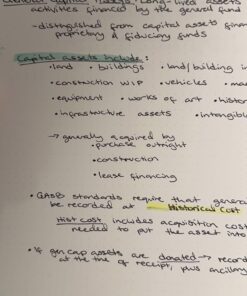 General Capital Assets: Long-lived assets
activities financed by the general fund
-distinguished from capital assets finan
proprietary & fiduciary funds
Capital assets include:
• land • buildings • land/building i
• construction WIP • vehicles • ma
• equipment • works of art • histo
• infrastructure assets • intangib
→ generally acquired by
• purchase outright
• construction
• lease financing
• GASB standards require that genera
be recorded at Historical Cost
Hist cost includes acquisition cost
needed to put the asset into
• If gen cap assets are donated → reco
at the time of receipt, plus ancillary